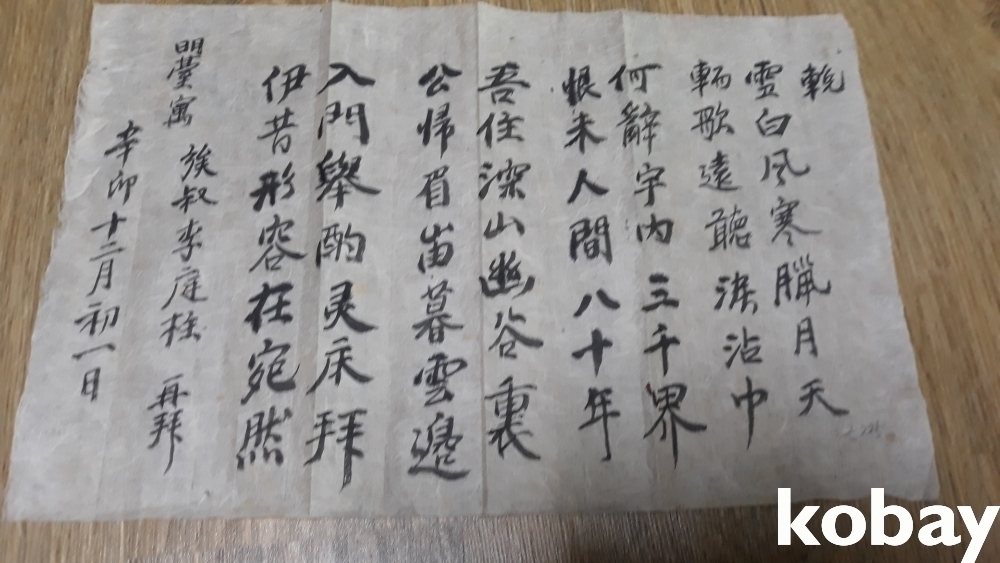 輓
雪白风寒臘月天
輀歌遠聽涙沾巾
何辭宇内三千界
恨未人間八十年
吾住深山幽谷裏
公帰眉畓暮雲邊
入門舉酌灵床拜
伊昔形容在宛然
寓 族叔李庭柱 再拜
辛卯十二月初一日
kobay